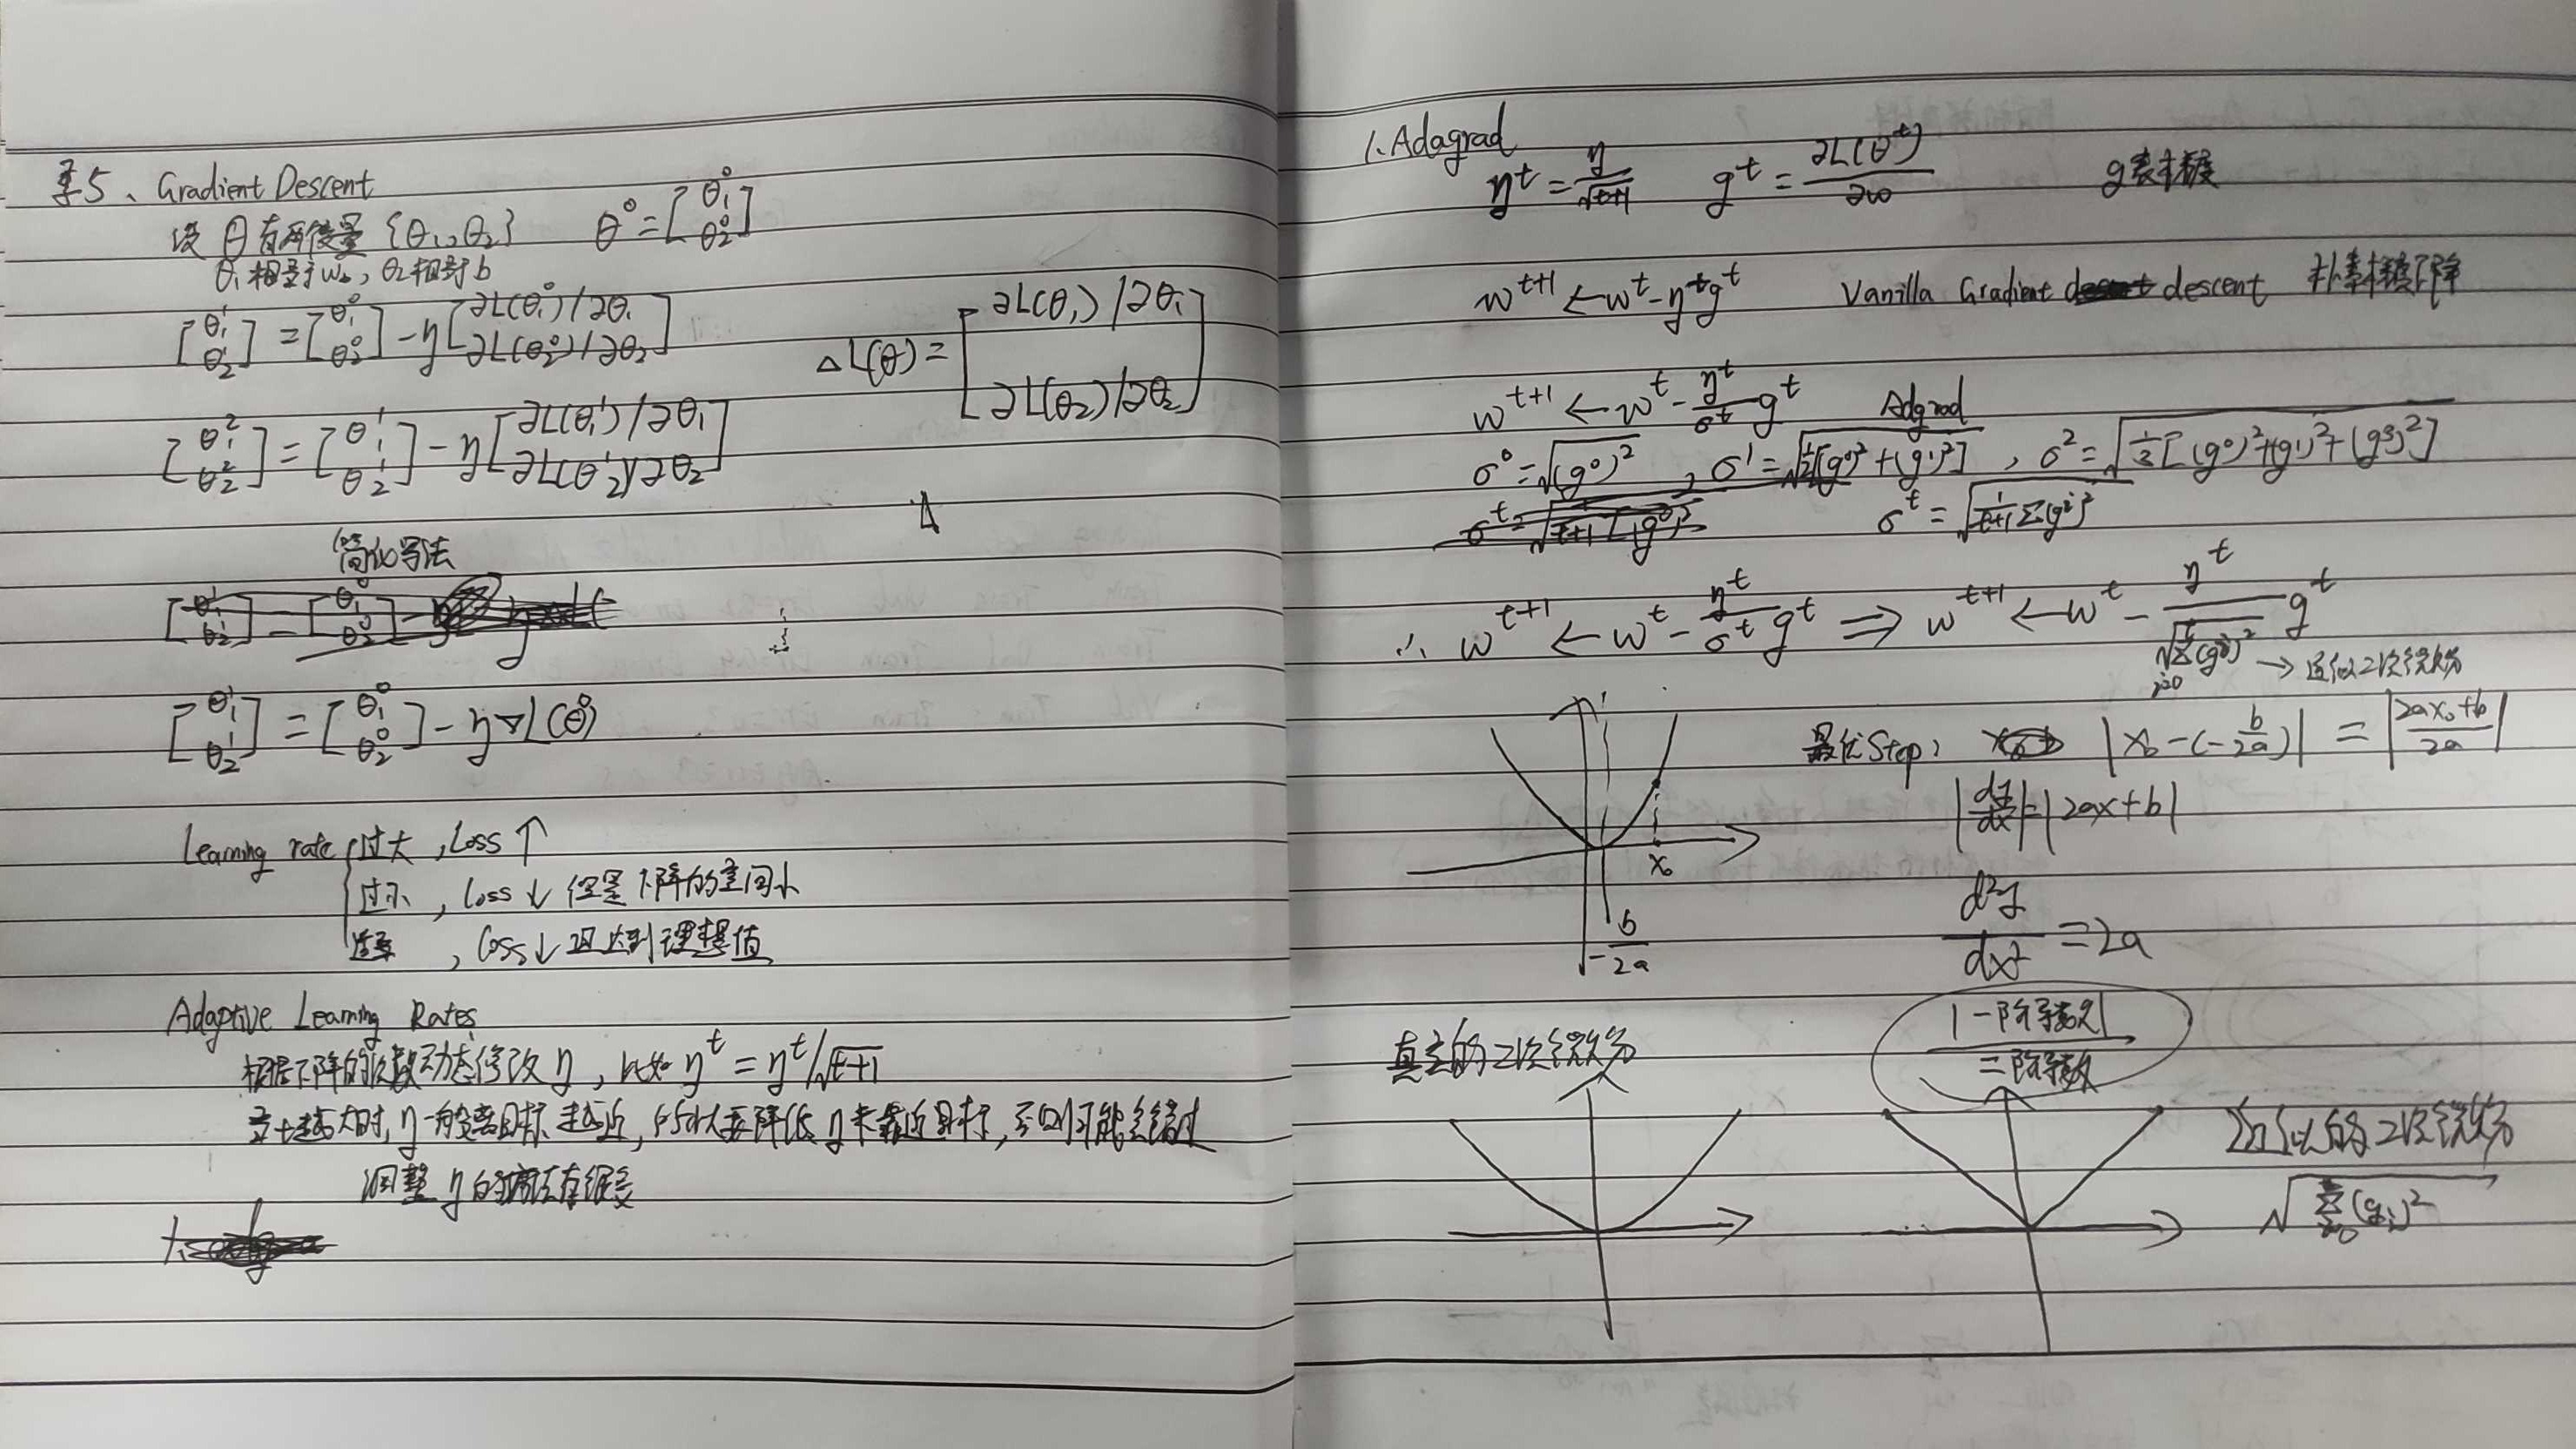 5、Gradient Descent
设 θ有两变量 {θ₁, θ₂}  θ⁰ = [θ₁⁰ θ₂⁰]
θ₁相当于w, θ₂相当于b
[θ₁¹ θ₂¹] = [θ₁⁰ θ₂⁰] - η[∂L(θ₁⁰)/∂θ₁ ∂L(θ₂⁰)/∂θ₂]
△L(θ) = [∂L(θ₁)/∂θ₁ ∂L(θ₂)/∂θ₂]
[θ₁² θ₂²] = [θ₁¹ θ₂¹] - η[∂L(θ₁¹)/∂θ₁ ∂L(θ₂¹)/∂θ₂]
简化写法
[θ₁¹ θ₂¹] = [θ₁⁰ θ₂⁰] - η▽L(θ⁰)
Learning rate { 过大, Loss ↑
过小, Loss ↓ 但是下降的空间小
, Loss↓ 且达到理想值
Adaptive Learning Rates
根据下降的次数动态修改 η, 比如 ηᵗ = ηᵗ/√t+1
当t越大时, η一般离目标越近, 所以要降低η来靠近目标, 否则可能会错过
调整 η的方法有很多
1. Adagrad
ηᵗ = η/√t+1  gᵗ = ∂L(θᵗ)/∂w  g表梯度
wᵗ⁺¹ ← wᵗ - ηᵗgᵗ  Vanilla Gradient descent 朴素梯度下降
wᵗ⁺¹ ← wᵗ - ηᵗ/σᵗ gᵗ  Adgrad
σ⁰ = √(g⁰)², σ¹ = √½[(g⁰)² + (g¹)²], σ² = √⅓[(g⁰)² + (g¹)² + (g³)²]
σᵗ = √1/t+1 Σ(gⁱ)²
∴ wᵗ⁺¹ ← wᵗ - ηᵗ/σᵗ gᵗ ⇒ wᵗ⁺¹ ← wᵗ - ηᵗ/√Σ(gⁱ)² gᵗ
i=0 → 近似二次微分
最优Step: |x₀ - (-b/2a)| = |2ax₀+b / 2a|
|dy/dx| = |2ax+b|
x₀
-b/2a
d²y/dx² = 2a
真正的二次微分
|一阶导数|
二阶导数
近似的二次微分
√Σ(gᵢ)²